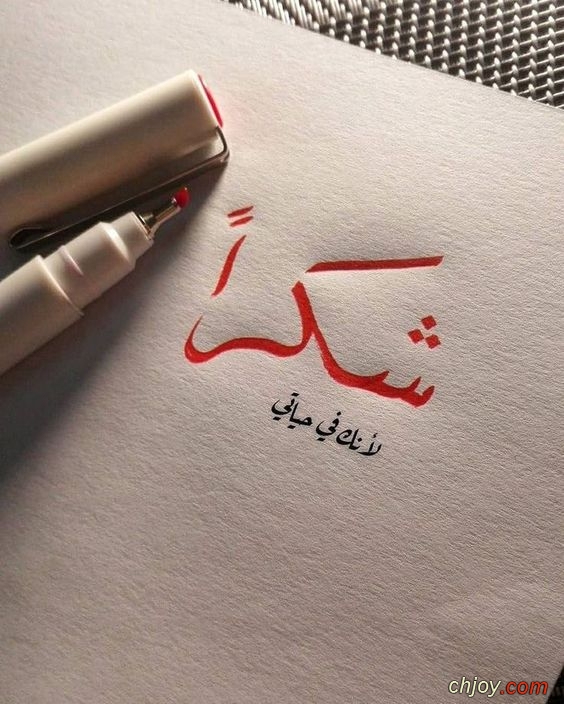 شكراً
لأنك في حياتي
chjoy.com